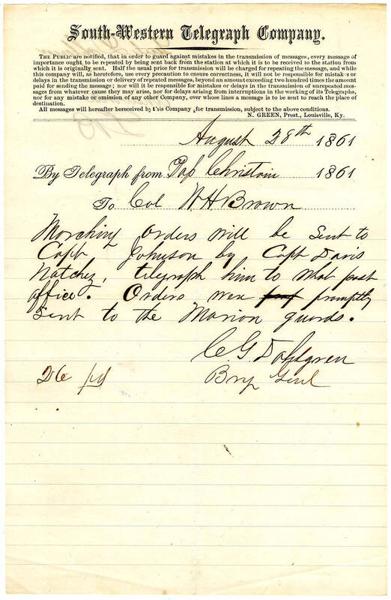 South-Western Telegraph Company.
THE PUBLIC are notified, that in order to guard against mistakes in the transmission of messages, every message of
importance ought to be repeated by being sent back from the station at which it is to be received to the station from
which it is originally sent. Half the usual price for transmission will be charged for repeating the message, and while
this company will, as heretofore, use every precaution to ensure correctness, it will not be responsible for mistakes or
delays in the transmission or delivery of repeated messages, beyond an amount exceeding two hundred times the amount
paid for sending the message; nor will it be responsible for mistakes or delays in the transmission of unrepeated mes-
sages from whatever cause they may arise, nor for delays arising from interruptions in the working of its Telegraphs,
nor for any mistake or omission of any other Company, over whose lines a message is to be sent to reach the place of
destination.
All messages will hereafter be received by this Company for transmission, subject to the above conditions.
N. GREEN, Prest., Louisville, Ky.
August 28th 1861
By Telegraph from Pass Christian 1861
To Col W H Brown
Marching orders will be sent to
Capt Johnson by Capt Davis
Natchez, telegraph him to what post
office. Orders were promptly
sent to the Marion guards.
C G Dahlgren
26 pd Brig Genl